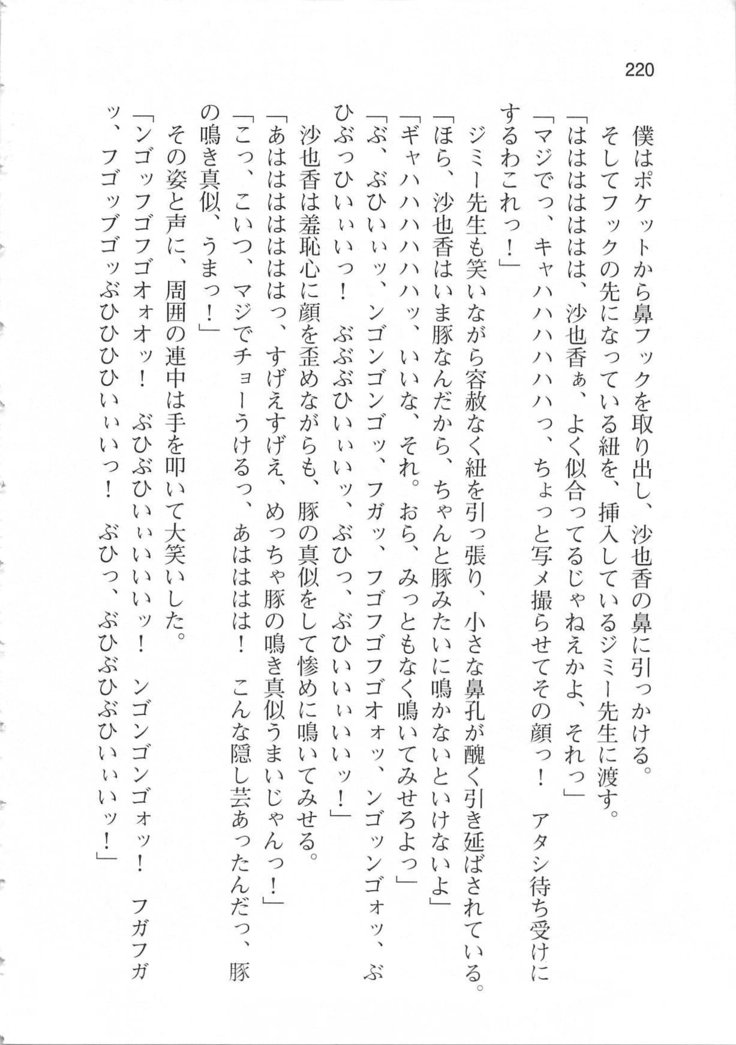 220
僕はポケットから鼻フックを取り出し、沙也香の鼻に引っかける。
そしてフックの先になっている紐を、挿入しているジミー先生に渡す。
「はははははは、沙也香ぁ、よく似合ってるじゃねえかよ、それっ」
「マジでっ、キャハハハハハハっ、ちょっと写メ撮らせてその顔っ！　アタシ待ち受けに
するわこれっ！」
ジミー先生も笑いながら容赦なく紐を引っ張り、小さな鼻孔が醜く引き延ばされている。
「ほら、沙也香はいま豚なんだから、ちゃんと豚みたいに鳴かないといけないよ」
「ギャハハハハハハッ、いいな、それ。おら、みっともなく鳴いてみせろよっ」
「ぶ、ぶひいぃッ、ンゴンゴンゴッ、フガッ、フゴフゴフゴオォッ、ンゴッンゴォッ、ぶ
ひぶっひいぃいっ！　ぶぶぶひいぃいッ、ぶひっ、ぶひいいぃいいッ！」
沙也香は羞恥心に顔を歪めながらも、豚の真似をして惨めに鳴いてみせる。
「あはははははははっ、すげえすげえ、めっちゃ豚の鳴き真似うまいじゃんっ！」
「こっ、こいつ、マジでチョーうけるっ、あはははは！　こんな隠し芸あったんだっ、豚
の鳴き真似、うまっ！」
その姿と声に、周囲の連中は手を叩いて大笑いした。
「ンゴッフゴフゴオォオッ！　ぶひぶひいぃいいいッ！　ンゴンゴンゴォッ！　フガフガ
ッ、フゴッブゴッぶひひひひいぃいっ！　ぶひっ、ぶひぶひぶひいぃいッ！」